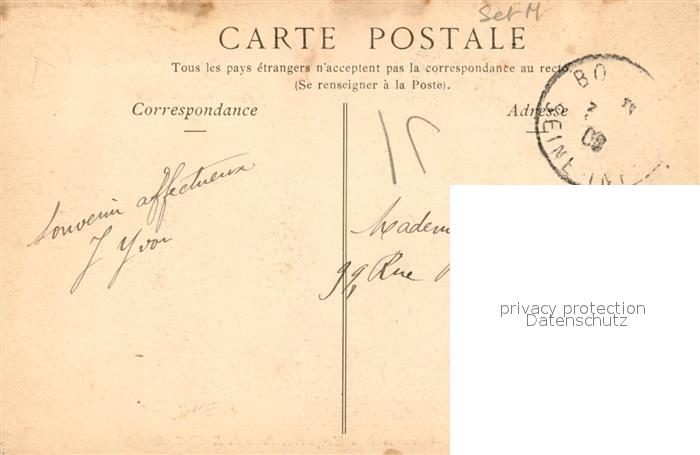 Set M
CARTE POSTALE
Tous les pays étrangers n'acceptent pas la correspondance au recto.
(Se renseigner à la Poste).
Correspondance
Adresse
BO
SEINE INF
09
Souvenir affectueux
J Yvon
Madem
99, Rue
privacy protection
Datenschutz